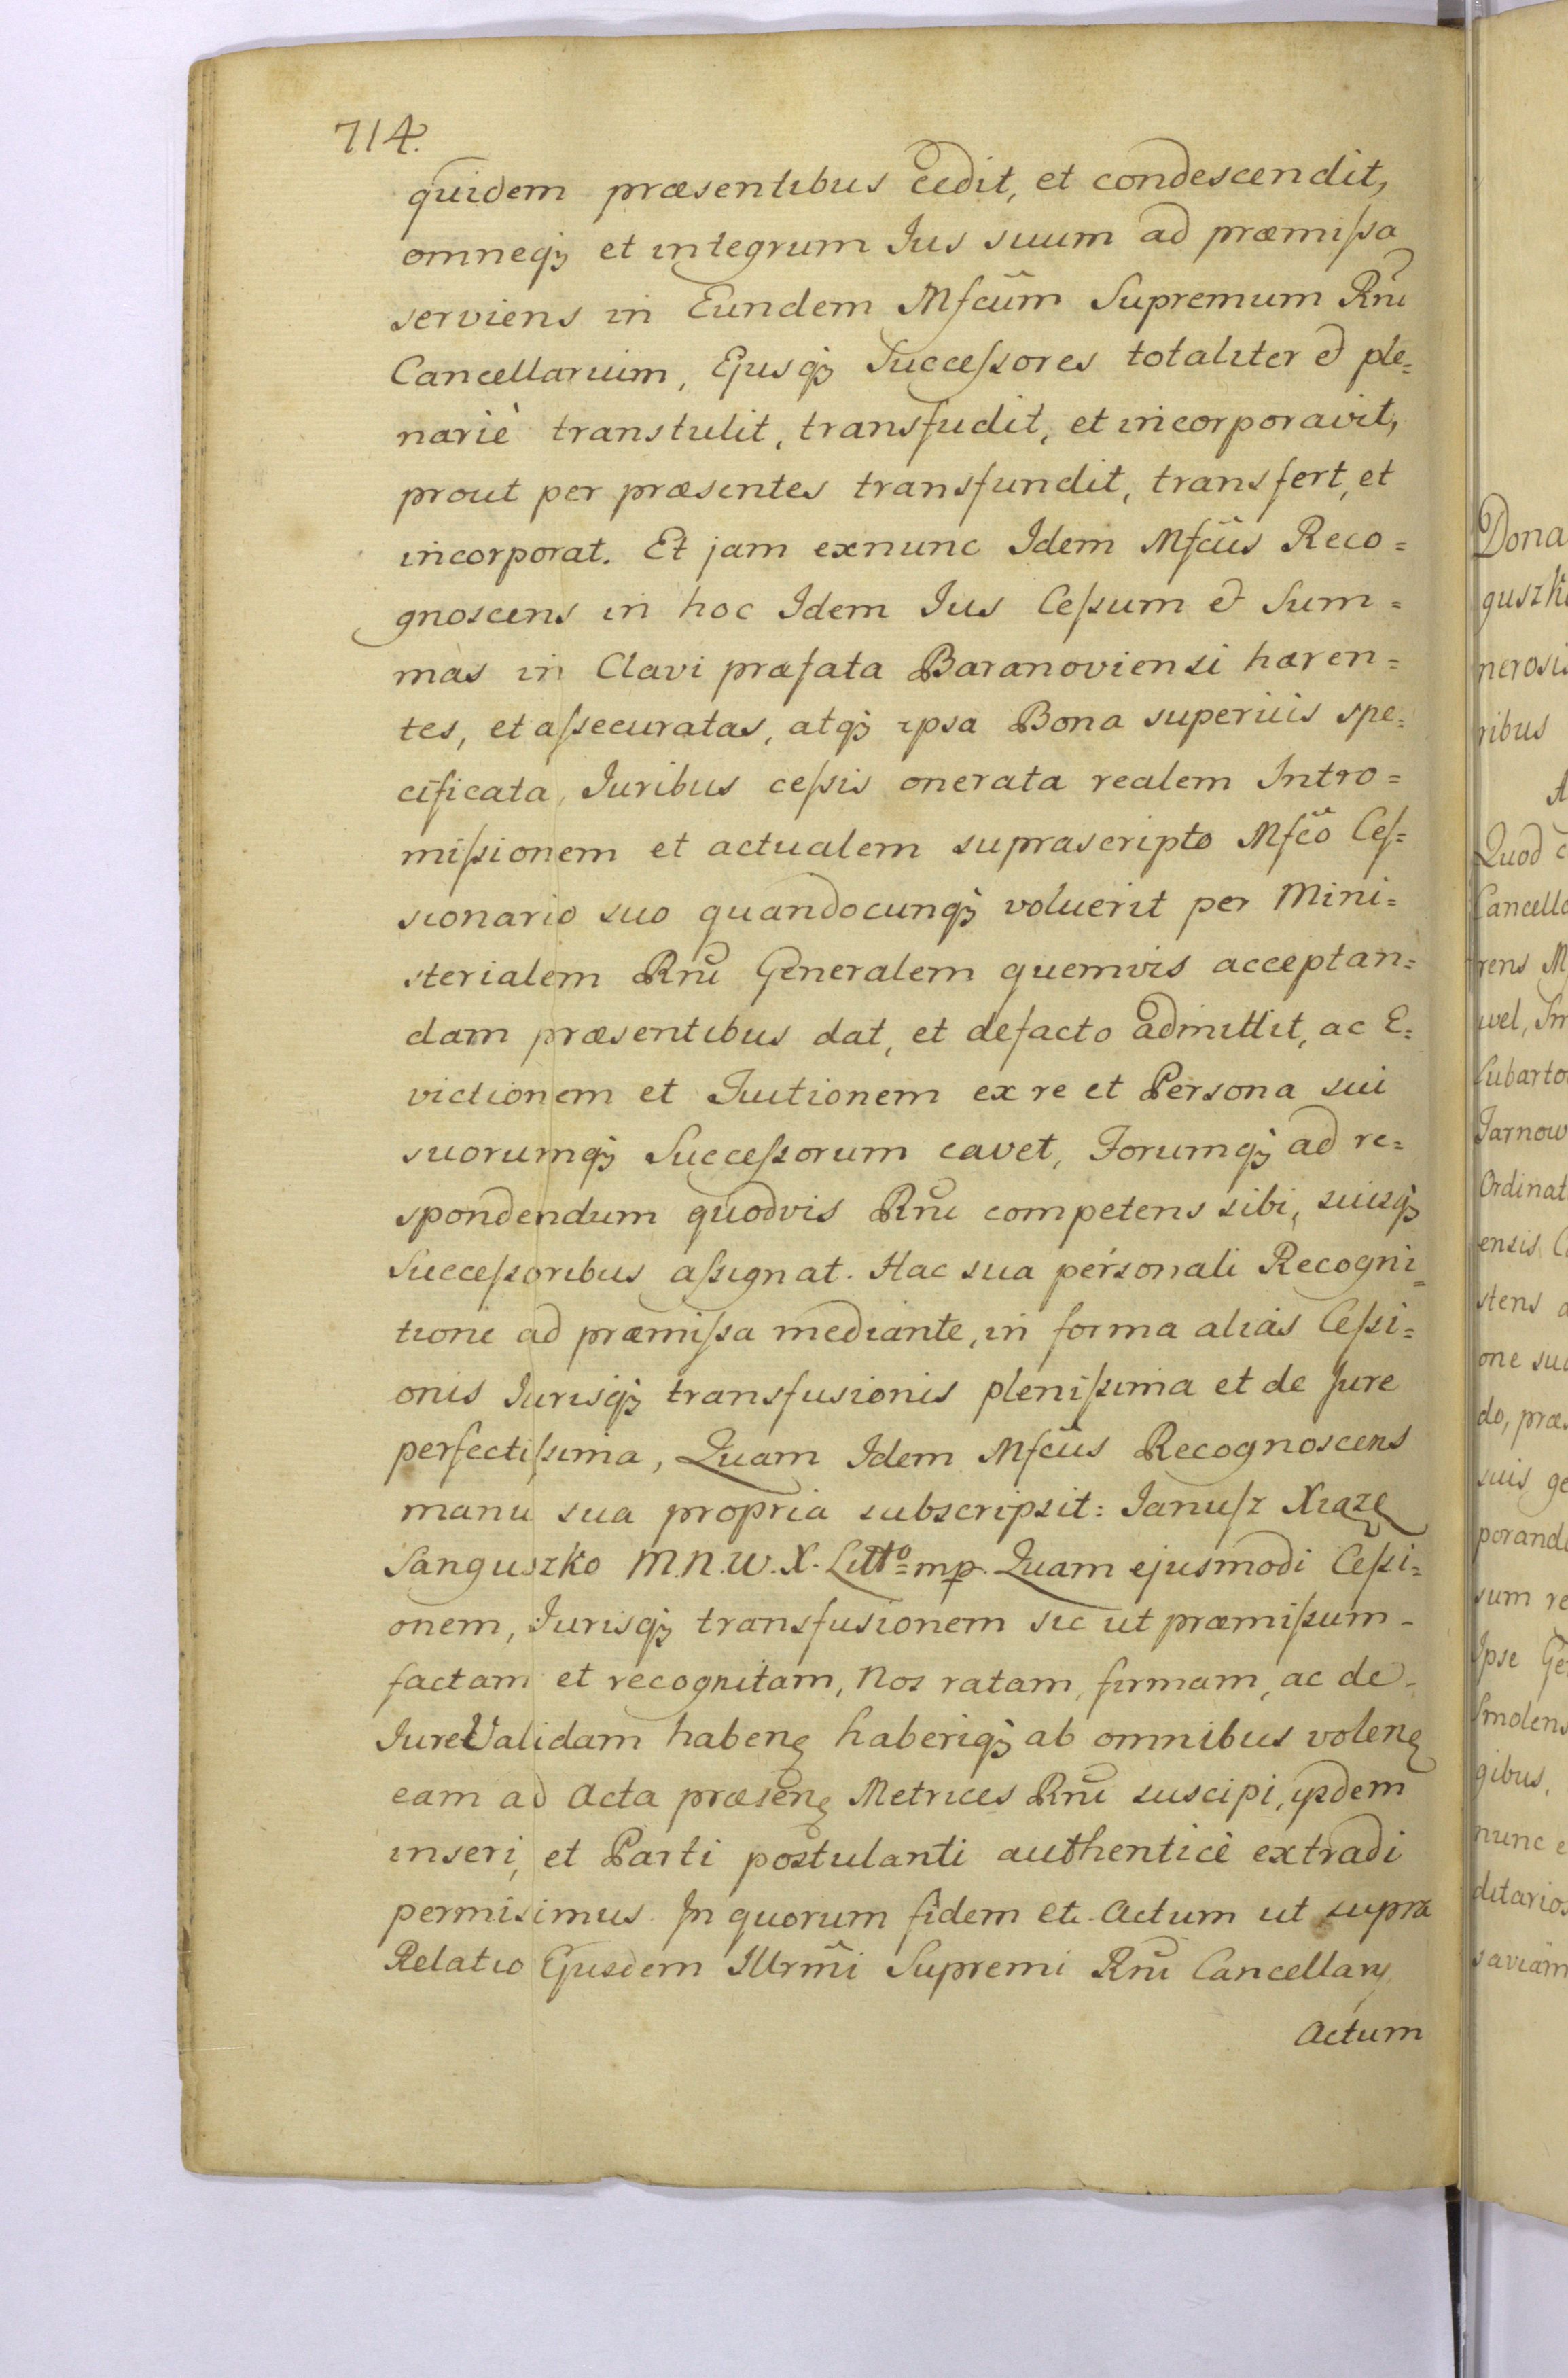 714.
quidem præsentibus cedit, et condescendit,
omneqꝫ et integrum Jus suum ad præmiſsa
serviens in Eundem Mfcũm Supremum Rñi
Cancellarium, Ejusqꝫ Succeſsores totaliter & ple=
nariè transtulit, transfudit, et incorporavit,
prout per præsentes transfundit, transfert, et
incorporat. Et jam exnunc Idem Mfcũs Reco=
gnoscens in hoc Idem Jus Ceſsum & Sum=
mas in Clavi præfata Baranoviensi hæren=
tes, et aſsecuratas, atqꝫ ipsa Bona superius spe=
cificata, Juribus ceſsis onerata realem Intro=
miſsionem et actualem suprascripto Mfcõ Ceſ=
sionario suo quandocunqꝫ voluerit per Mini=
sterialem Rñi Generalem quemvis acceptan=
dam præsentibus dat, et defacto admittit, ac E=
victionem et Tuitionem ex re et Persona sui
suorumqꝫ Succeſsorum cavet, Forumqꝫ ad re=
spondendum quodvis Rñi competens sibi, suisqꝫ
Succeſsoribus aſsignat. Hac sua personali Recogni=
tione ad præmiſsa mediante, in forma aliàs Ceſsi=
onis Jurisqꝫ transfusionis pleniſsima et de Jure
perfectiſsima, Quam Idem Mfcũs Recognoscens
manu sua propria subscripsit: Januſz Xiąze
Sanguszko M.N.W.X. Littº= mp. Quam ejusmodi Ceſsi=
onem, Jurisqꝫ transfusionem sic ut præmiſsum-
factam et recognitam, Nos ratam, firmam, ac de-
Jure Validam habenę haberiqꝫ ab omnibus volenę
eam ad Acta præsenę Metrices Rñi suscipi, ijsdem
inseri, et Parti postulanti authenticè extradi
permisimus. In quorum fidem etc. Actum ut supra
Relatio Ejusdem Illrmĩ Supremi Rñi Cancellarij
Actum
Dona
guszk
nerosi
ribus
A
Quod c
Cancella
rens M
wel, Sm
Lubarto
Tarnow
Ordinat
ensis C
stens a
one su
do, præ
suis ge
porand
sum re
Ipse Ge
Smolens
gibus,
nunc e
ditarios
saviam